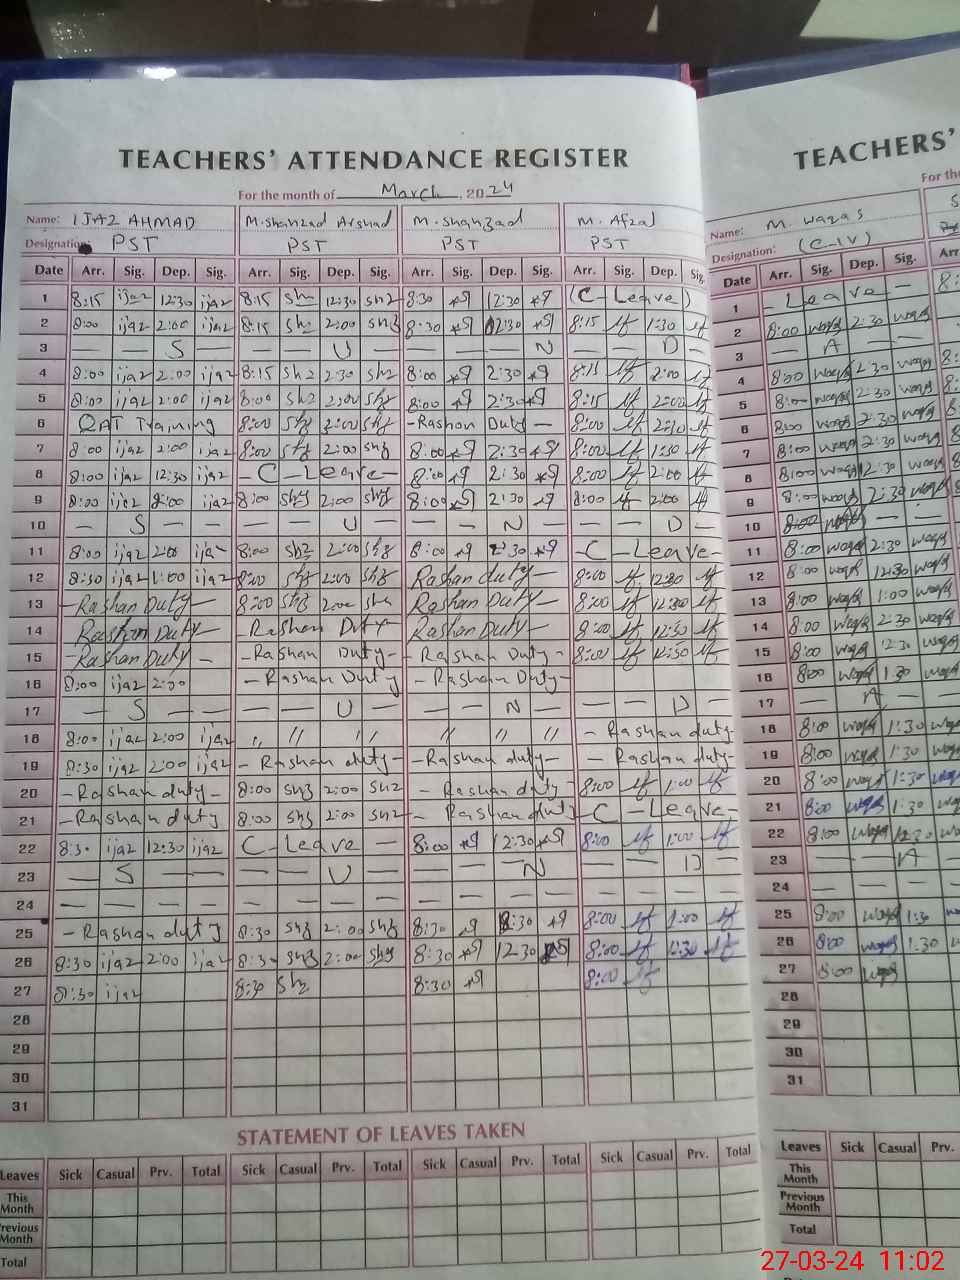 TEACHERS' ATTENDANCE REGISTER
For the month of March, 2024
Name: IJAZ AHMAD M. Shahzad Arshad M. Shahzad M. Afzal
Designation: PST PST PST PST
Date Arr. Sig. Dep. Sig. Arr. Sig. Dep. Sig. Arr. Sig. Dep. Sig. Arr. Sig. Dep. Sig.
1 8:15 ijaz 12:30 ijaz 8:15 shz 12:30 shz 8:30 12:30 (C-Leave)
2 8:00 ijaz 2:00 ijaz 8:15 shz 2:00 shz 8:30 12:30 8:15 1:30
3 — — S — — — U — — — N — — — D —
4 8:00 ijaz 2:00 ijaz 8:15 shz 2:30 shz 8:00 2:30 8:15 2:00
5 8:00 ijaz 2:00 ijaz 8:00 shz 2:00 shz 8:00 2:30 8:15 2:00
6 QAT Training 8:00 shz 2:00 shz - Rashan Duty — 8:00
7 8:00 ijaz 2:00 ijaz 8:00 shz 2:00 shz 8:00 2:30 8:00 1:30
8 8:00 ijaz 12:30 ijaz - C - Leave - 8:00 2:30 8:00 2:00
9 8:00 ijaz ijaz 8:00 shz 2:00 shz 8:00 2:30 8:00 2:00
10 — S — — — — U — — — N — — — D —
11 8:00 ijaz 2:00 ija 8:00 shz 2:00 shz 8:00 2:30 - C - Leave -
12 8:30 ijaz 1:00 ijaz 8:00 shz 2:00 shz Rashan duty — 8:00 12:30
13 - Rashan Duty — 8:00 shz 2:00 shz Rashan Duty — 8:00 12:30
14 Rashan Duty — - Rashan Duty - Rashan Duty — 8:00 12:30
15 - Rashan Duty — - Rashan Duty - - Rashan Duty - 8:00 12:30
16 8:00 ijaz 2:00 - Rashan Duty - Rashan Duty -
17 — S — — — — U — — — N — — — D —
18 8:00 ijaz 2:00 ijaz " " " " " " - Rashan duty -
19 8:30 ijaz 2:00 ijaz - Rashan duty - - Rashan duty - - Rashan duty -
20 - Rashan duty - 8:00 shz 2:00 shz - Rashan duty 8:00 1:00
21 - Rashan duty 8:00 shz 2:00 shz - Rashan duty - C - Leave -
22 8:30 ijaz 12:30 ijaz C - Leave — 8:00 12:30 8:00 1:00
23 — S — — — — U — — — N — — — D
24 — — — — — — — — — — — — — — — —
25 - Rashan duty 8:30 shz 2:00 shz 8:30 8:00 1:00
26 8:30 ijaz 2:00 ijaz 8:30 shz 2:00 shz 8:30 12:30 8:00 1:30
27 8:30 ijaz 8:30 shz 8:30 8:00
28
29
30
31
STATEMENT OF LEAVES TAKEN
Leaves Sick Casual Prv. Total Sick Casual Prv. Total Sick Casual Prv. Total Sick Casual Prv. Total
This Month
Previous Month
Total
TEACHERS'
For the
Name: M. Waqas
Designation: (C-IV)
Date Arr. Sig. Dep. Sig. Arr
1 - Leave -
2 8:00 waqas 2:30 waqas
3 — A — —
4 8:00 waqas 2:30 waqas
5 8:00 waqas 2:30 waqas
6 8:00 waqas 2:30 waqas
7 8:00 waqas 2:30 waqas
8 8:00 waqas 12:30 waqas
9 8:00 waqas 2:30 waqas
10 8:00 waqas — —
11 8:00 waqas 2:30 waqas
12 8:00 waqas 12:30 waqas
13 8:00 waqas 1:00 waqas
14 8:00 waqas 2:30 waqas
15 8:00 waqas 12:30 waqas
16 8:00 waqas 1:30 waqas
17 — A —
18 8:00 waqas 1:30 waqas
19 8:00 waqas 1:30 waqas
20 8:00 waqas 1:30 waqas
21 8:00 waqas 1:30 waqas
22 8:00 waqas 12:30 waqas
23 — — A —
24 — — — —
25 8:00 waqas 1:30
26 8:00 waqas 1:30
27 8:00 waqas
28
29
30
31
Leaves Sick Casual Prv.
This Month
Previous Month
Total
27-03-24 11:02